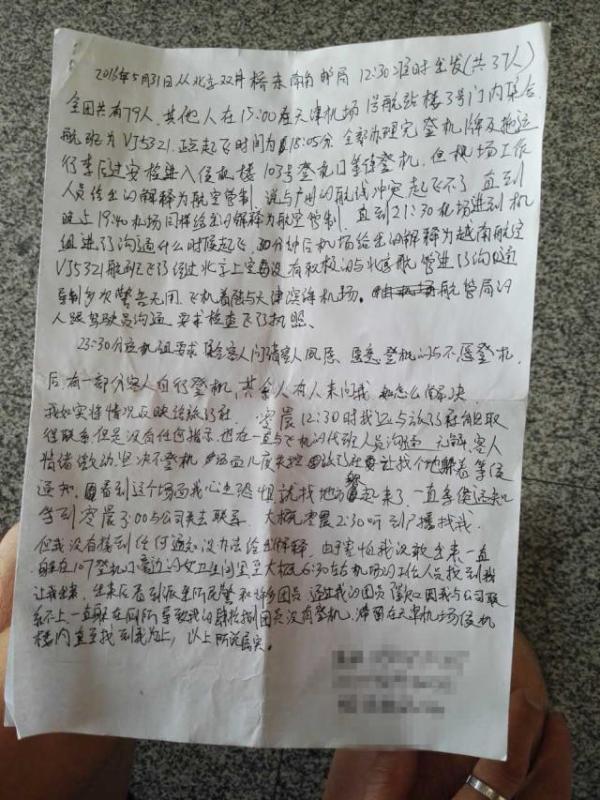 2016年5月31日从北京双井桥东南角邮局 12:30准时出发(共37人)
全团共有79人,其他人在15:00在天津机场1号航站楼3号门内集合
航班为VJ5321.正点起飞时间为18:05分 全部办理完登机牌及托运
行李后过安检进入候机楼 103号登机口等待登机,但机场工作
人员给出的解释为航空管制,说与广州的航线冲突起飞不了 直到
晚上19:00机场同样给出的解释为航空管制.直到21:30机场进到机
组进行沟通什么时候起飞,30分钟后机场给出的解释为越南航空
VJ5321航班飞行经过北京上空没有积极的与北京航管进行沟通
导制多次警告无用,飞机着陆与天津滨海机场。航管局的
人跟驾驶员沟通.要求检查飞行执照、
23:30分应机组要求 客人问询客人 愿意登机的与不愿登机,
后有一部分客人自行登机,其余人有人来问我 怎么解决
我如实将情况反映给旅行社 零晨12:30时我还与旅行社能取
得联系但是没有任何指示.也在一直与飞机的代班人员沟通 无解,客人
情绪激动,坚决不登机 场面几度失控 旅行社要让找个地躲着等候
通知,看到这个场面我心生恐惧就找地方躲起来了,一直等候
等到零晨3:00与公司失去联系,大概零晨2:30听到广播找我.
但我没有接到任何通知没办法给出解释,由于害怕我没敢出来一直
躲在107登机口旁边的女卫生间里至大概6:30左右机场的工作人员找到我
让我出来,出来后看到派出所民警和许多团员 通过我的团员得知因我与公司联
系不上一直躲在厕所导致我的 团员没有登机,滞留在天津机场候机
楼内直至找到我为止,以上所说属实。